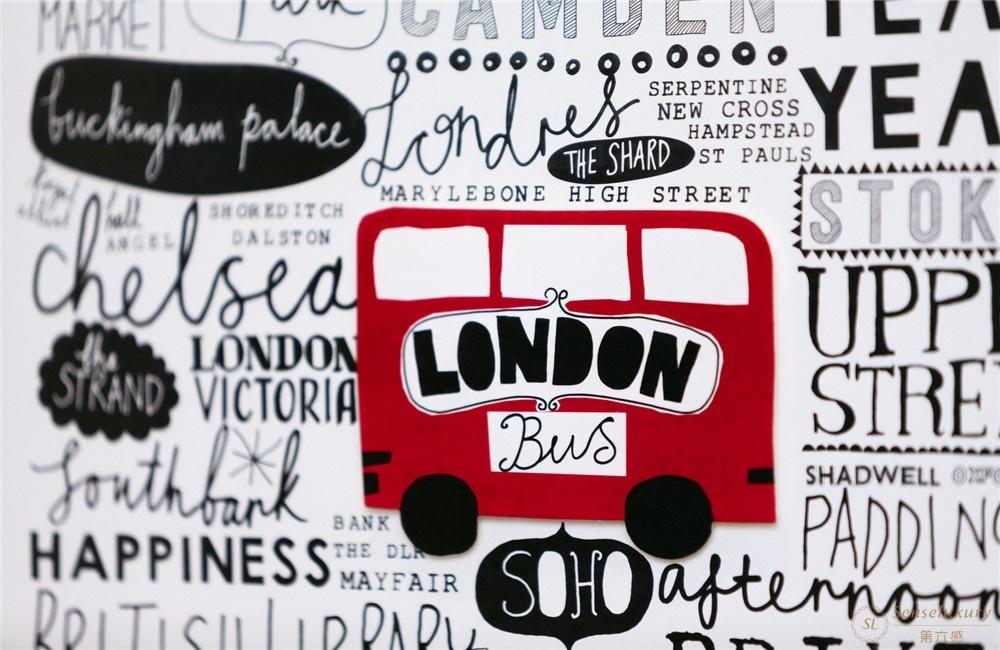 MARKET
Park
CAMDEN
YEA
buckingham palace
Londres
SERPENTINE
NEW CROSS
HAMPSTEAD
THE SHARD
ST PAULS
MARYLEBONE HIGH STREET
SHOREDITCH
DALSTON
ANGEL
chelsea
the
STRAND
LONDON
VICTORIA
Southbank
HAPPINESS
BANK
THE DLR
MAYFAIR
BRITISH LIBRARY
LONDON
Bus
SOHO
afternoon
STOK
UPP
STRE
SHADWELL
PADDING
SL
Senseluxury
第六感